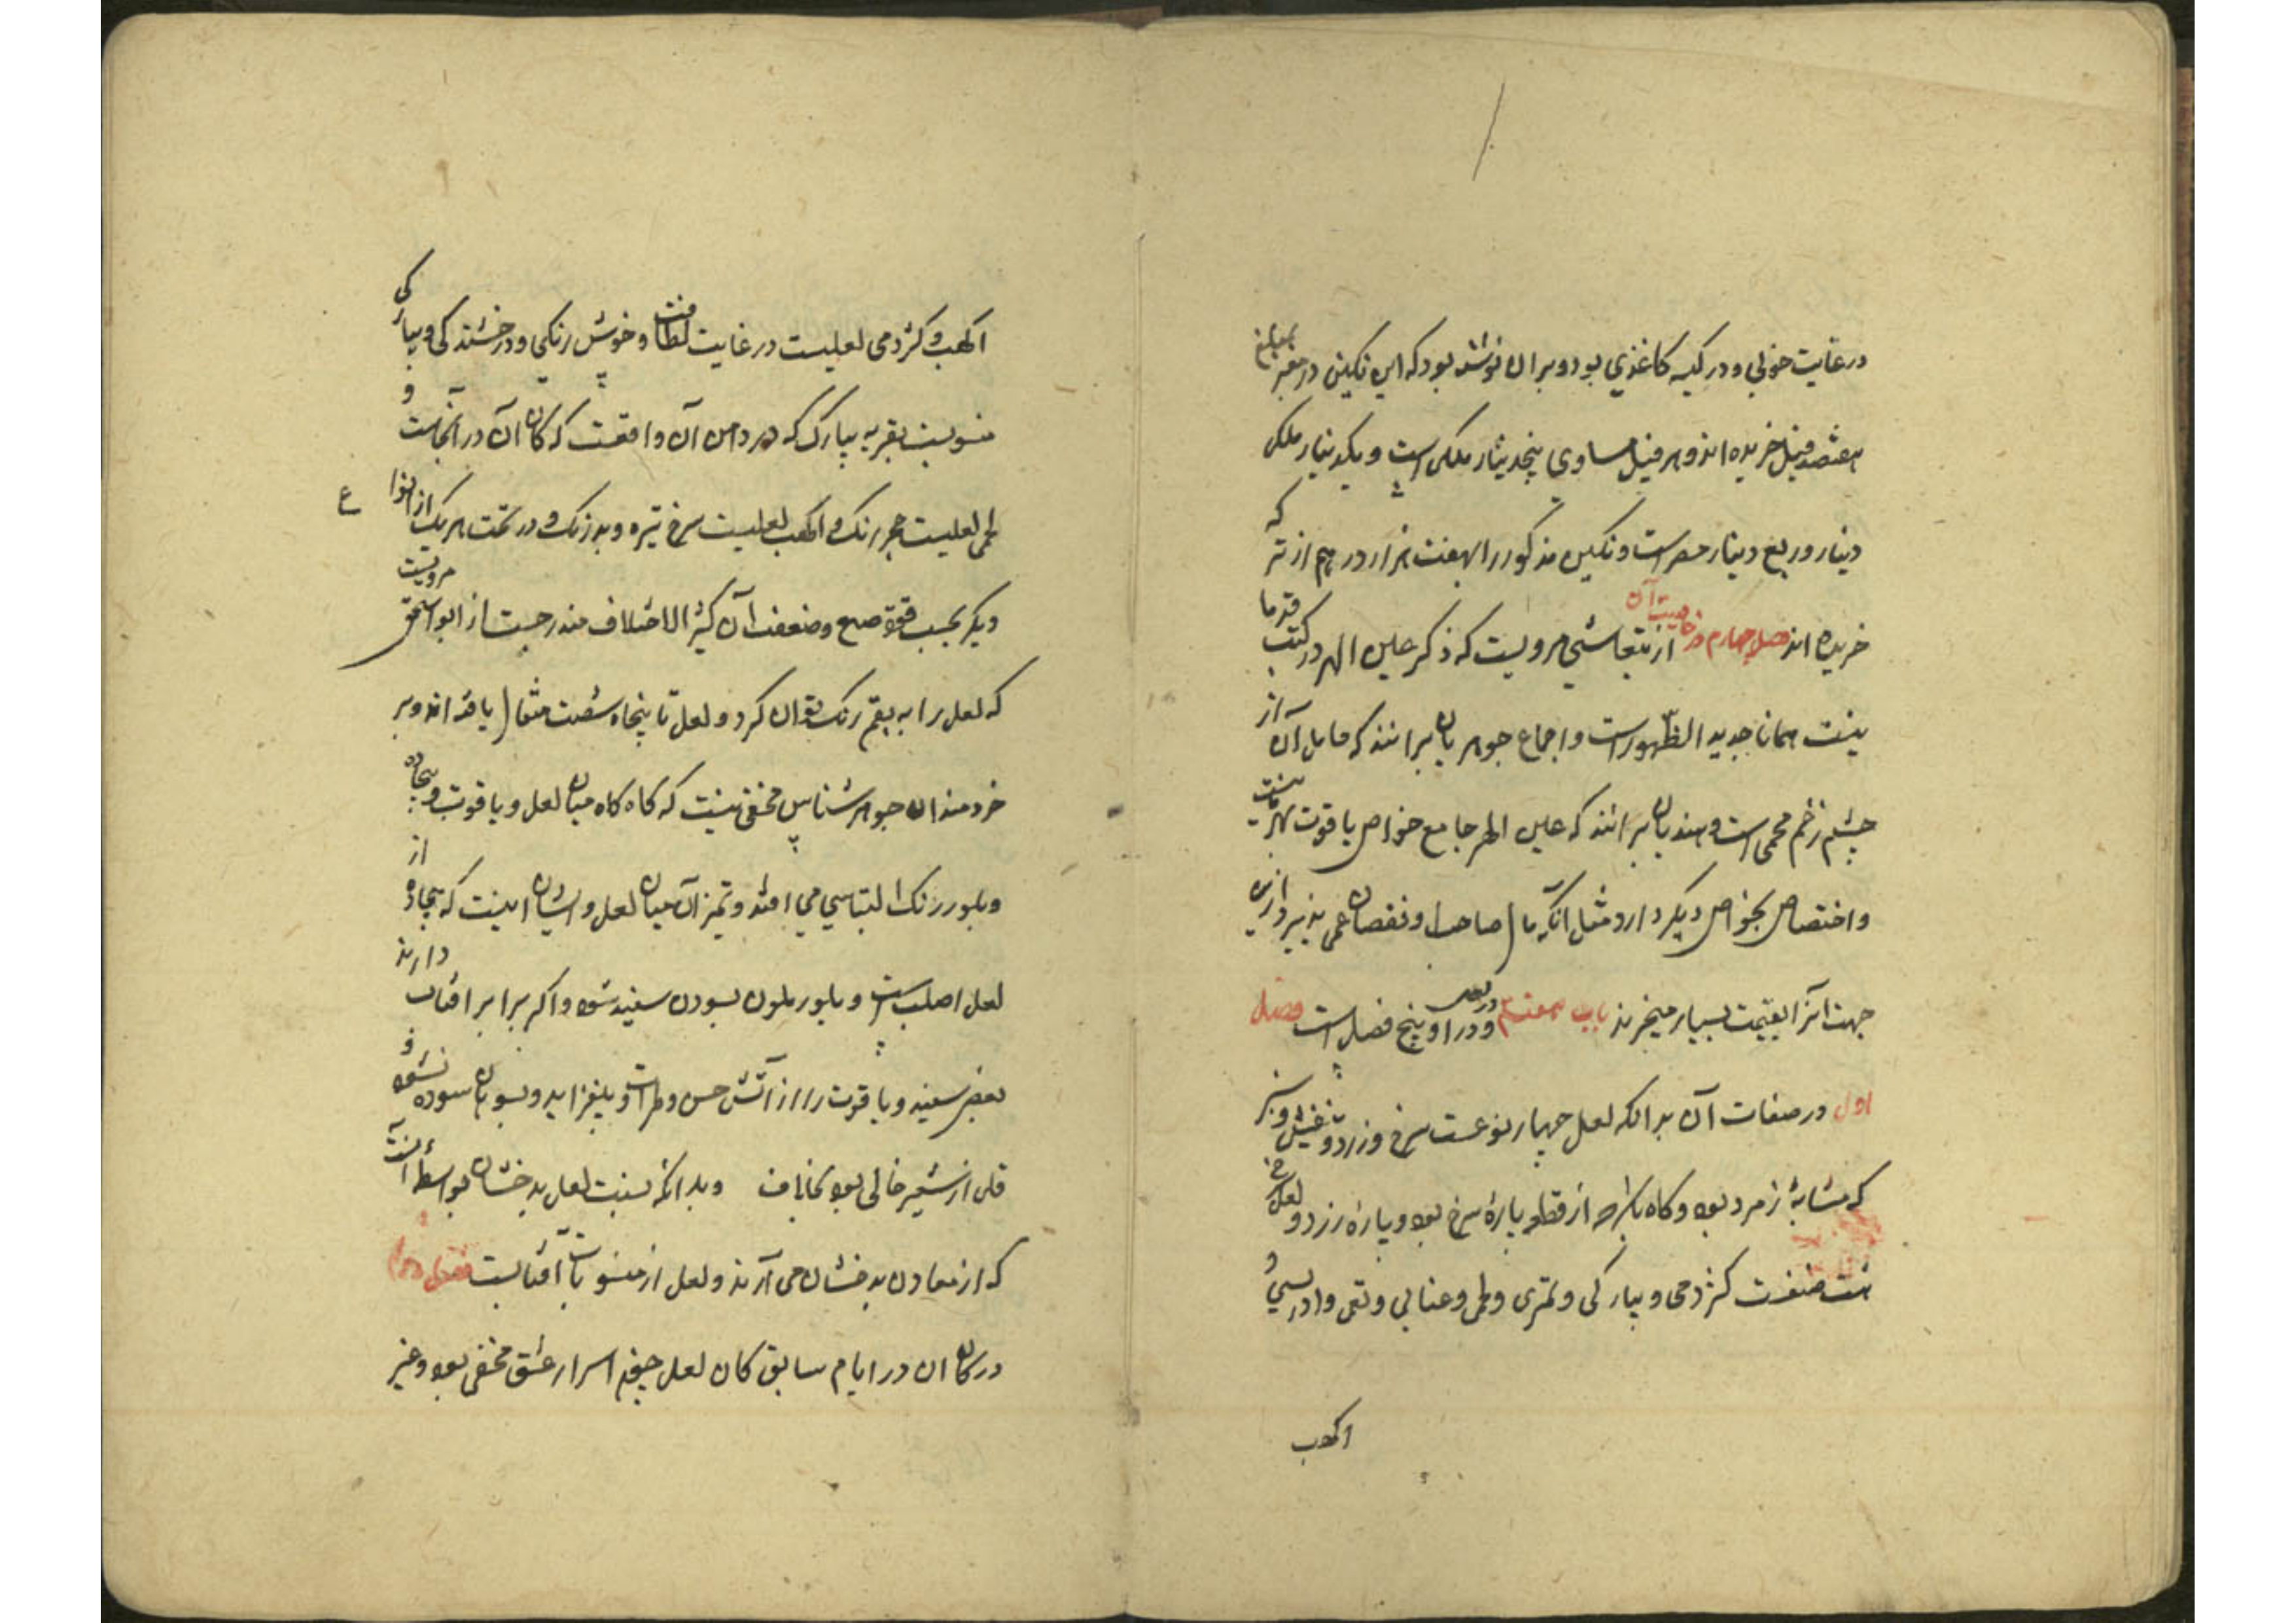 در غایت خوبی و در کیسه کاغذی بود و بر آن نوشته بود که این نکین در معبر بمبلغ
هفتصد فنیل خریده اند و هر فنیل مساوی پنج دینار ملکی است و یکدینار ملکی
دینار و ربع دینار مصر است و نکین مذکور را بهفت هزار درهم از تر که
خریده اند فصل چهارم در خاصیت آن از تیفاشی مرویست که ذکر عین الهر در کتب قدما
نیست همانا جدید الظهور است و اجماع جوهریان برانند که حامل آن از
چشم زخم محمی است و هندیان برانند که عین الهر جامع خواص یاقوت بهرمانیست
و اختصاص بخواص دیکر دارد مثل آنکه مال صاحبش نقصان نمی پذیرد ازین
جهت آنرا بقیمت بسیار میخرند باب هفتم در لعل و در او پنج فصل است فصل
اول در صفات آن بدانکه لعل چهار نوعست سرخ و زرد و بنفش و سبز
که مشابه زمرد بود و کاه باشد از قطعه پاره سرخ بود و پاره زرد و لعل سرخ
هشت صنفست کژدمی و پیازکی و تمری و لحمی و عنابی و بقمی و ادریسی و
اکهب
اکهب و کژدمی لعلیست در غایت لطافت و خوش رنکی و درخشندکی و پیازکی
منسوبست بقریه پیازک که در دامن آن واقعست که کان آن در آنجاست و
لحمی لعلیست حجر رنک و اکهب لعلیست سرخ تیره و بد رنک و در تحت هر یک از انواع
دیکر بحسب قوة صبغ و ضعف آن کثیر الاختلاف مندرجست از ابو اسحق مرویست
که لعل را به بقم رنک توان کرد و لعل تا پنجاه شصت مثقال یافته اند و بر
خردمندان جواهر شناس مخفی نیست که کاه کاه میان لعل و یاقوت و بیجاده
و بلور رنک التباسی می افتد و تمیز آن میان لعل و ایشان اینست که بیجاده از
لعل اصلب است و بلور ملون بسودن سفید شود و اکر برابر آفتاب دارند
بعضی سفید و یاقوت را از آتش حسن و طراوت بیفزاید و بسوهان سوده نشود و
فلی از شعیر خالی بود بخلاف و بدانکه نسبت لعل ببدخشان بواسطه آنست
که از معادن بدخشان می آرند و لعل از منسوبات آفتابست فصل دوم
در کان آن در ایام سابق کان لعل چون اسرار عشق مخفی بود و غیر